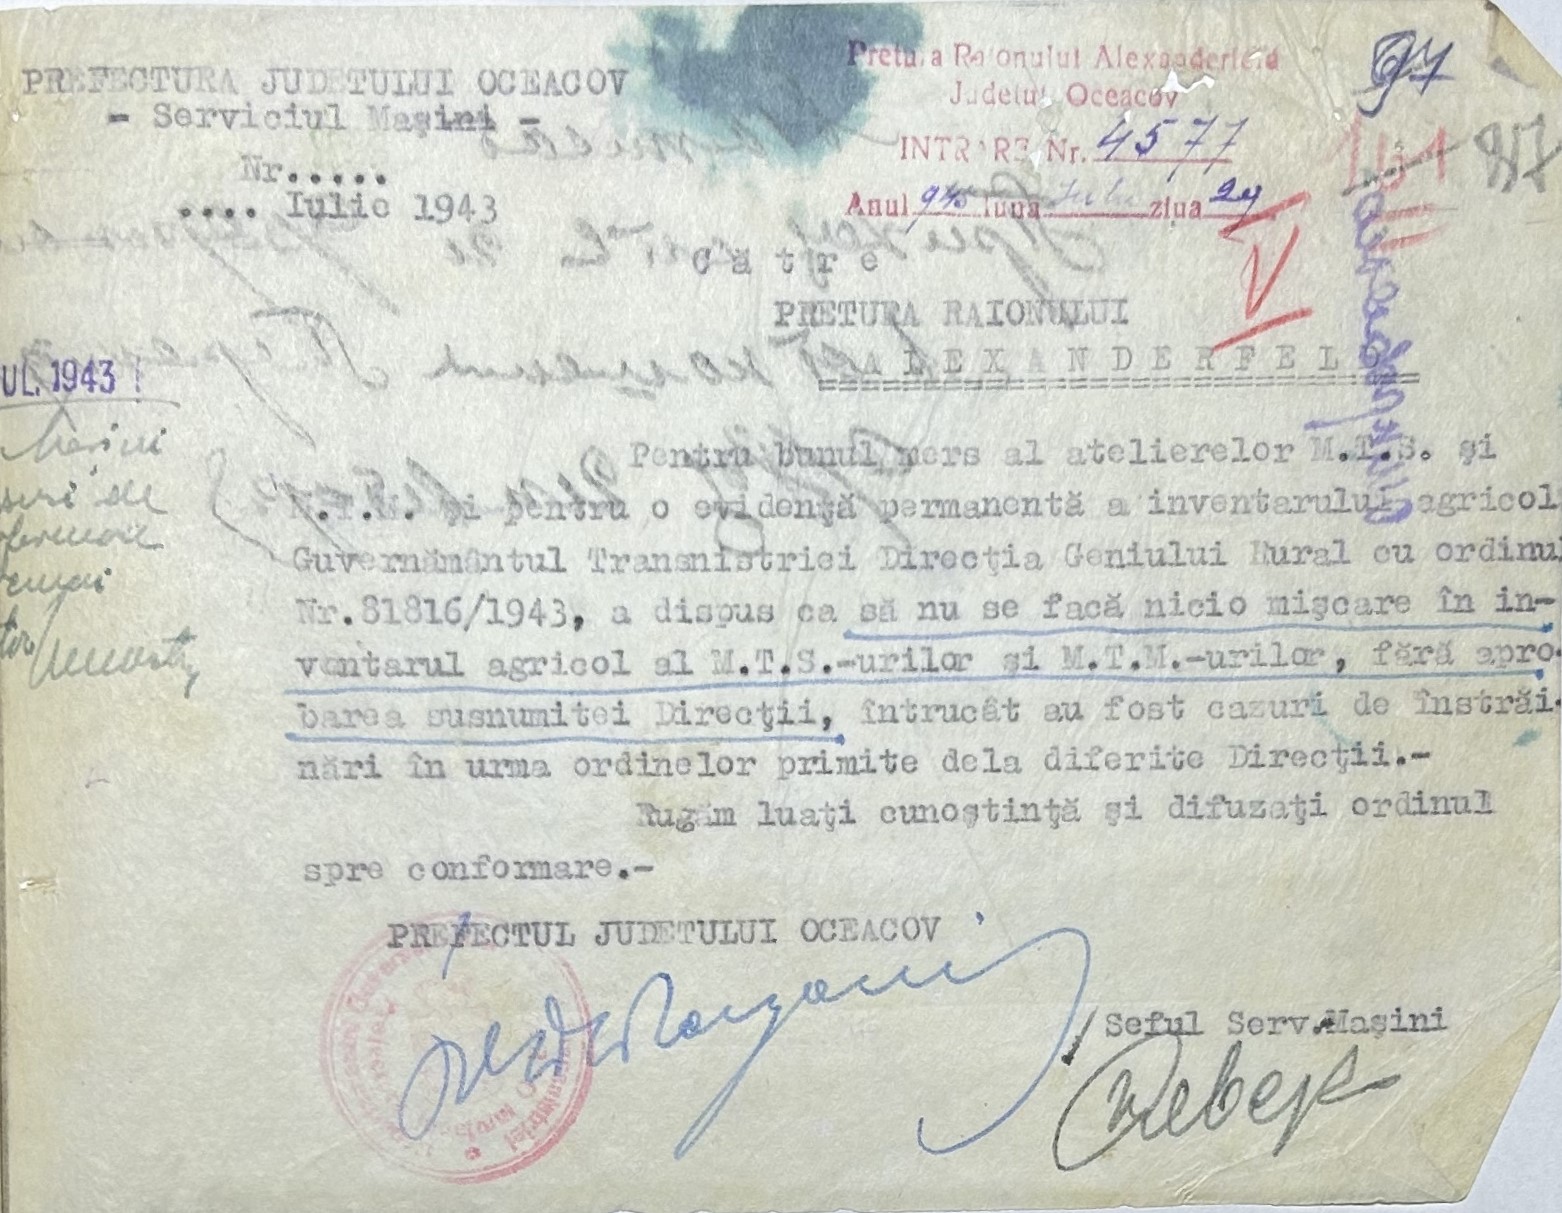 PREFECTURA JUDETULUI OCEACOV
- Serviciul Maşini -
Nr.....
.... Iulie 1943
Pretura Raionului Alexanderfeld
Judetul Oceacov
INTRARE Nr. 4577
Anul 943 luna Iulie ziua 29
97
97
V
C ă t r e
PRETURA RAIONULUI
A L E X A N D E R F E L D
UL. 1943
Pentru bunul mers al atelierelor M.T.S. şi
M.T.M. şi pentru o evidenţă permanentă a inventarului agricol
Guvernământul Transnistriei Direcţia Geniului Rural cu ordinul
Nr.81816/1943, a dispus ca să nu se facă nicio mişcare în in-
ventarul agricol al M.T.S.-urilor şi M.T.M.-urilor, fără apro-
barea susnumitei Direcţii, întrucât au fost cazuri de înstrăi-
nări în urma ordinelor primite dela diferite Direcţii.-
Rugăm luaţi cunoştinţă şi difuzaţi ordinul
spre conformare.-
PREFECTUL JUDETULUI OCEACOV
Seful Serv.Maşini